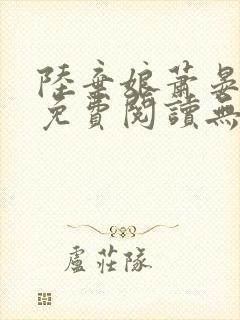 陸棄娘蕭晏
免費閱讀無
盧莊隊